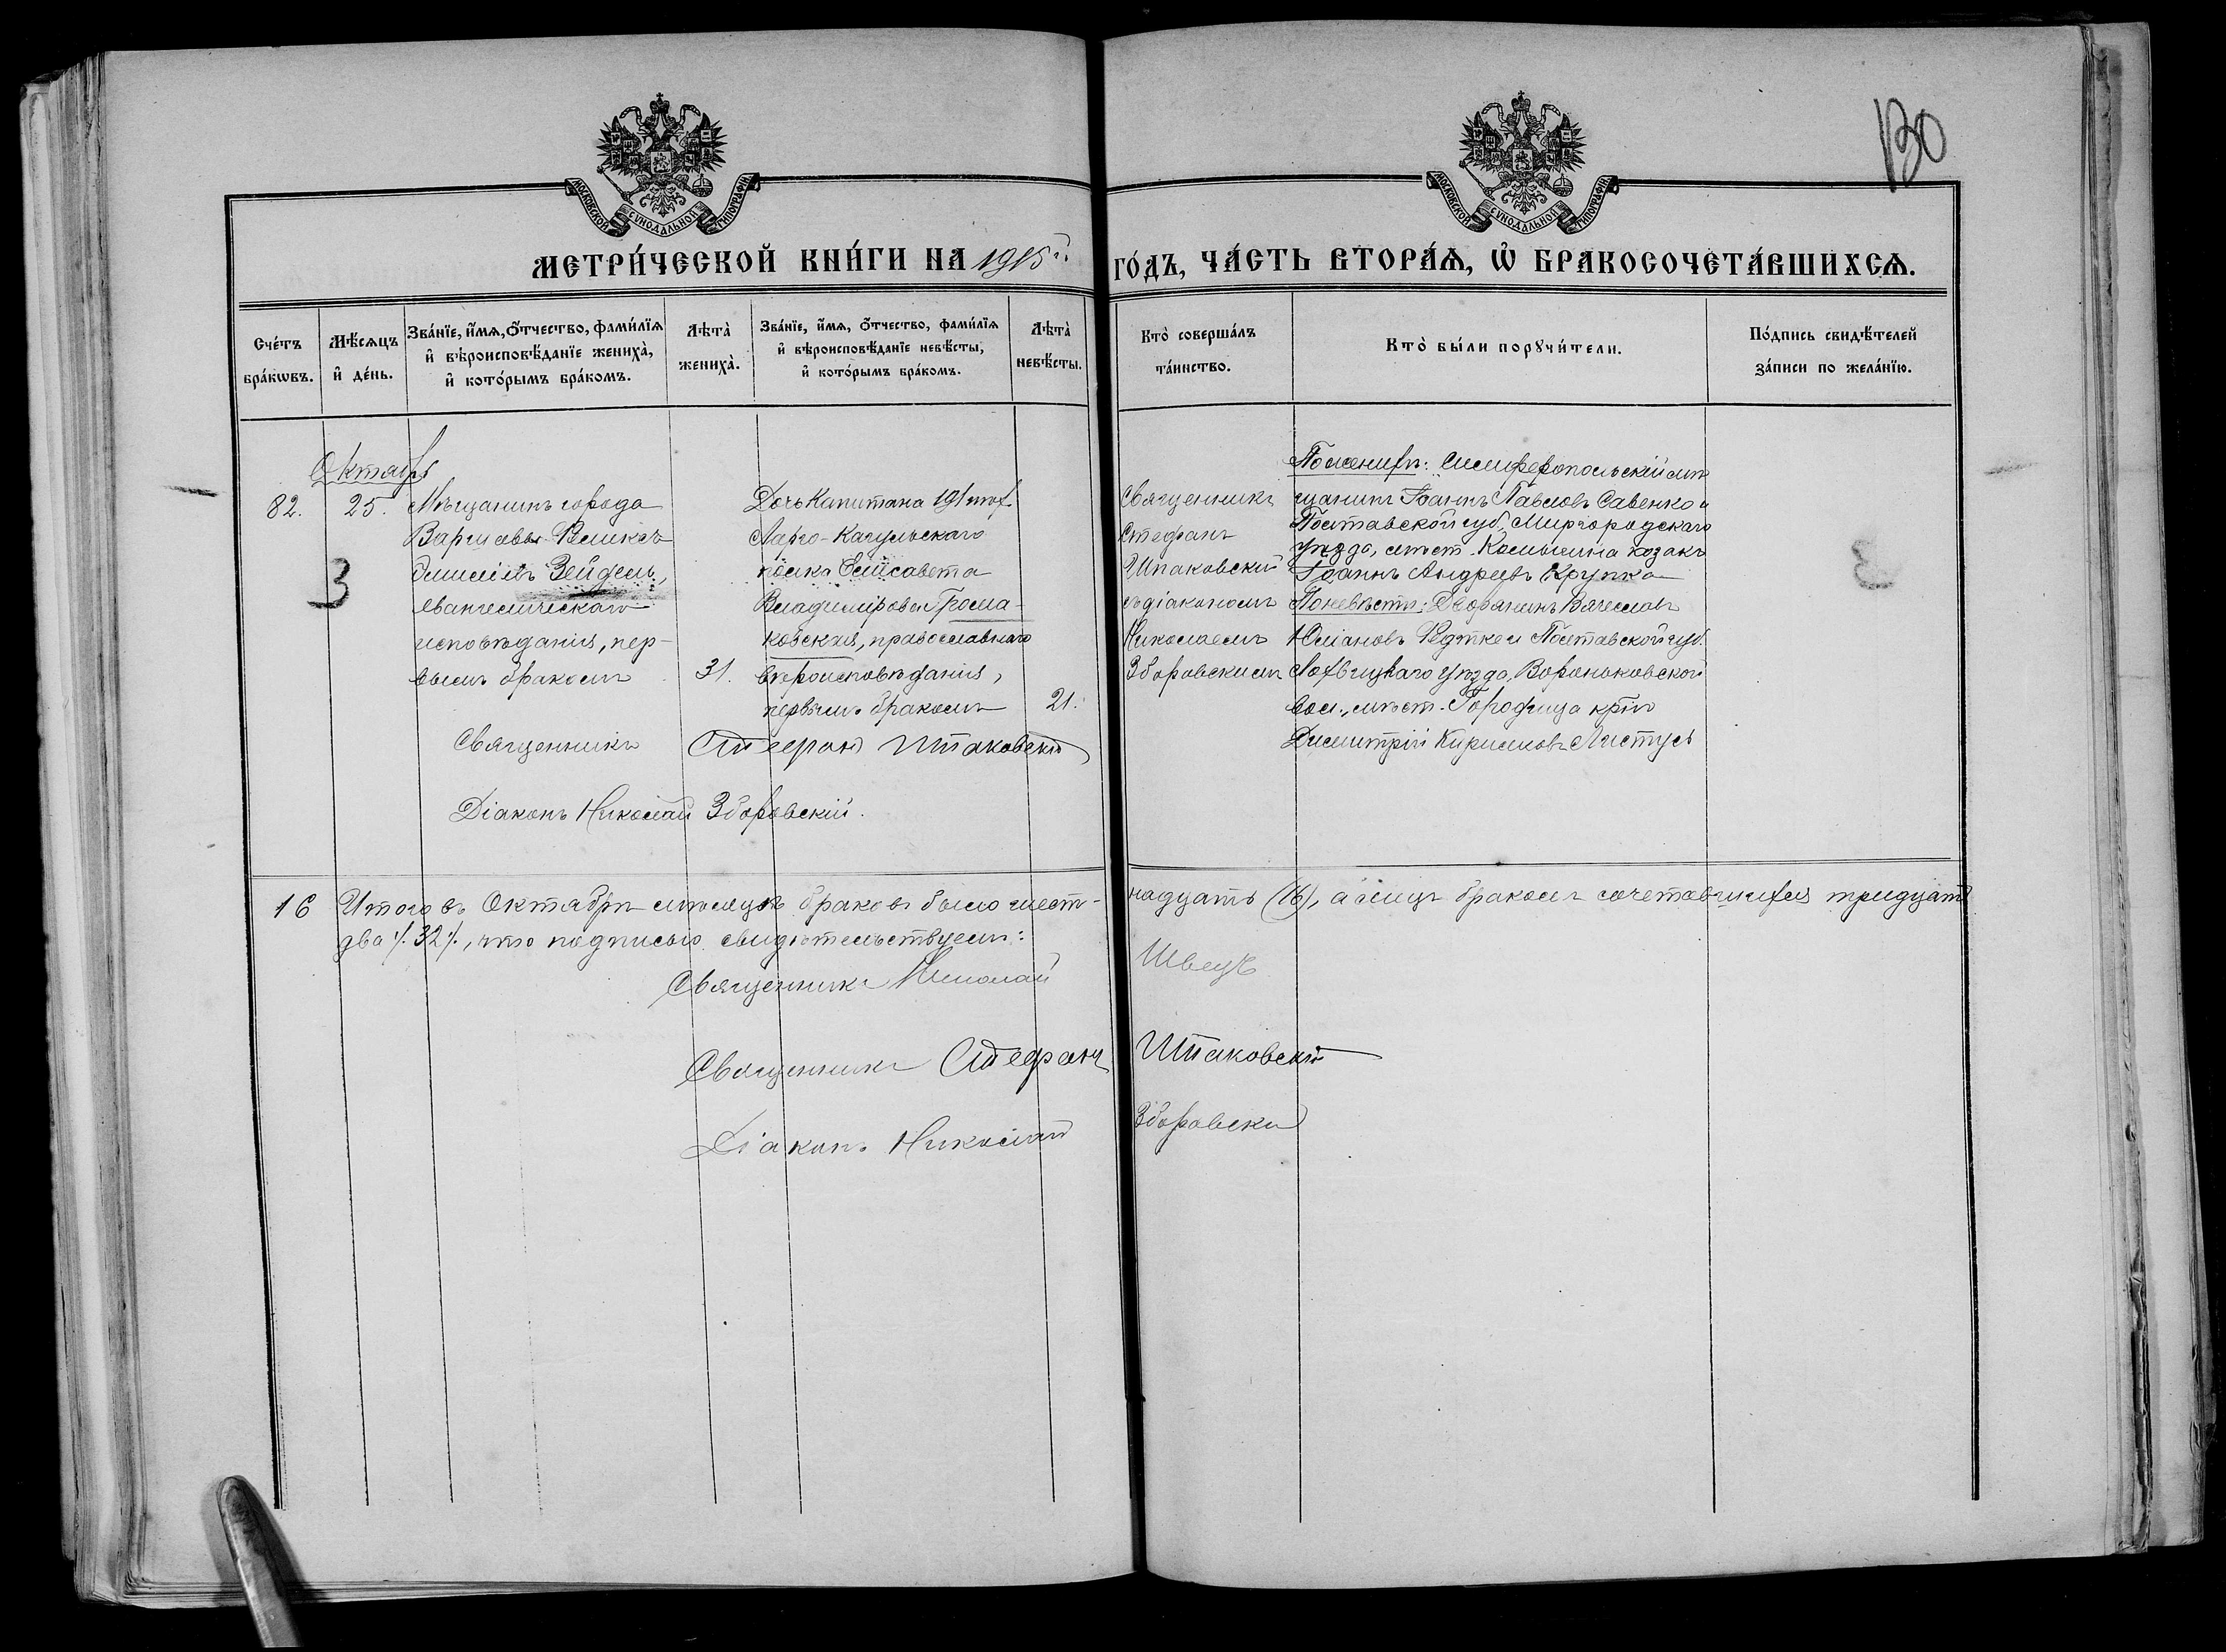 130
МОСКОВСКОЙ СѴНОДАЛЬНОЙ ТИПОГРАФІИ
МОСКОВСКОЙ СѴНОДАЛЬНОЙ ТИПОГРАФІИ
МЕТРИ́ЧЕСКОЙ КНИ́ГИ НА 1915й
ГО́ДЪ, ЧА́СТЬ ВТОРА́Ѧ, Ѡ҆ БРАКОСОЧЕТА́ВШИХСѦ.
Сче́тъ бра́кѡвъ.
Мѣ́сѧцъ и҆ де́нь.
Зва́нїе, и҆́мѧ, ѻ҆́тчество, фами́лїѧ и҆ вѣроисповѣ́данїе жениха̀, и҆ кото́рымъ бра́комъ.
Лѣта̀ жениха̀.
Зва́нїе, и҆́мѧ, ѻ҆́тчество, фами́лїѧ и҆ вѣроисповѣ́данїе невѣ́сты, и҆ кото́рымъ бра́комъ.
Лѣта̀ невѣ́сты.
Кто̀ соверша́лъ та́инство.
Кто̀ бы́ли порꙋчи́тели.
По́дпись свидѣ́телей за́писи по жела́нїю.
Октябрь
82.
25.
Мѣщанинъ города
Варшавы
Зейдель,
евангелическаго
исповѣданія, пер-
вымъ бракомъ
31.
Дочь Капитана 191го
Ларго-Кагульскаго
полка Елисавета
Владимірова Грома-
ковская, православнаго
вѣроисповѣданія,
первымъ бракомъ
21.
Священникъ
Стефанъ
Шпаковскій
съ діакономъ
Николаемъ
Зборовскимъ
По женихѣ: Симферопольскій мѣ-
щанинъ Іоаннъ Павловъ Савенко и
Полтавской губ., Миргородскаго
уѣзда, мѣст. Комышна козакъ
Іоаннъ Андреевъ Крупка
По невѣстѣ: Дворянинъ Вячеславъ
Юліановъ и Полтавской губ.
Лохвицкаго уѣзда, Вороньковской
вол., мѣст. Городища крнъ
Димитрій Кирилловъ
3
Священникъ Стефанъ Шпаковскій
Діаконъ Николай Зборовскій.
16 Итого въ Октябрѣ мѣсяцѣ браковъ было шест-
надцать (16), а лицъ бракомъ сочетавшихся тридцать
два /.32./, что подписью свидѣтельствуемъ:
Священникъ Николай Швецъ
Священникъ Стефанъ Шпаковскій
Діаконъ Николай Зборовскій